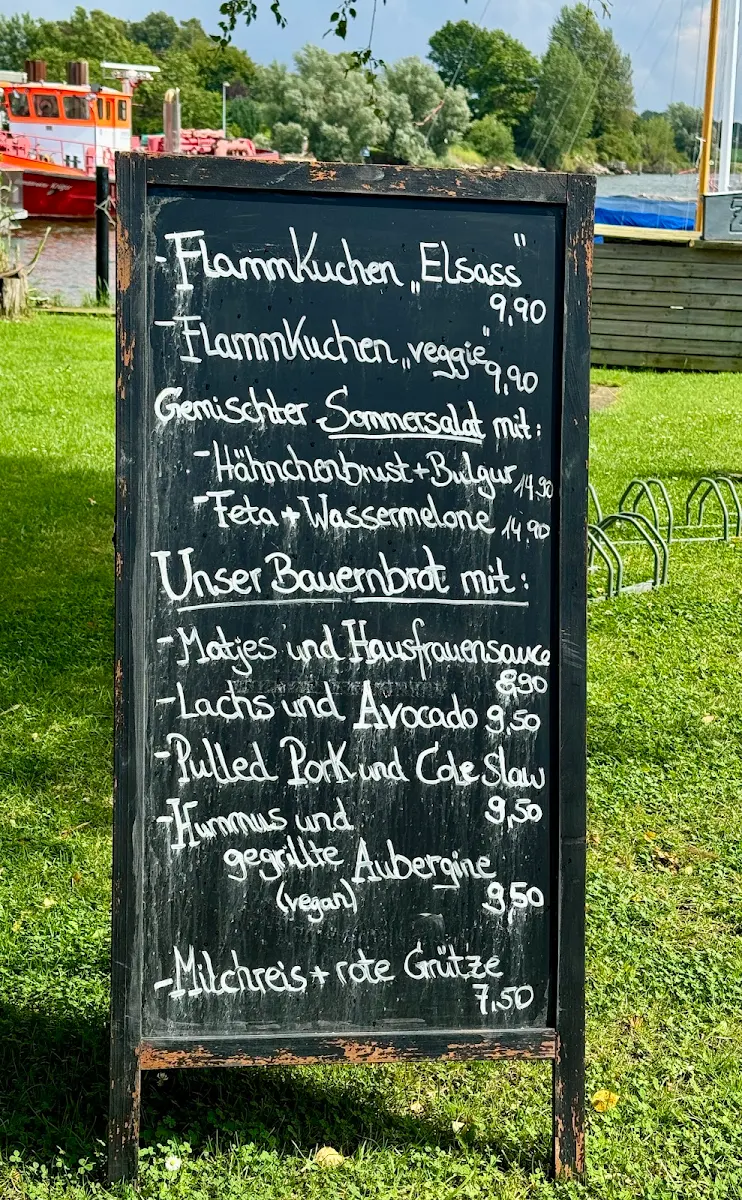 - Flammkuchen „Elsass"
9,90
- Flammkuchen „veggie"
9,90
Gemischter Sommersalat mit:
- Hähnchenbrust + Bulgur 14,90
- Feta + Wassermelone 14,90
Unser Bauernbrot mit:
- Matjes und Hausfrauensauce
8,90
- Lachs und Avocado 9,50
- Pulled Pork und Cole Slaw
9,50
- Hummus und
gegrillte Aubergine
(vegan) 9,50
- Milchreis + rote Grütze
7,50